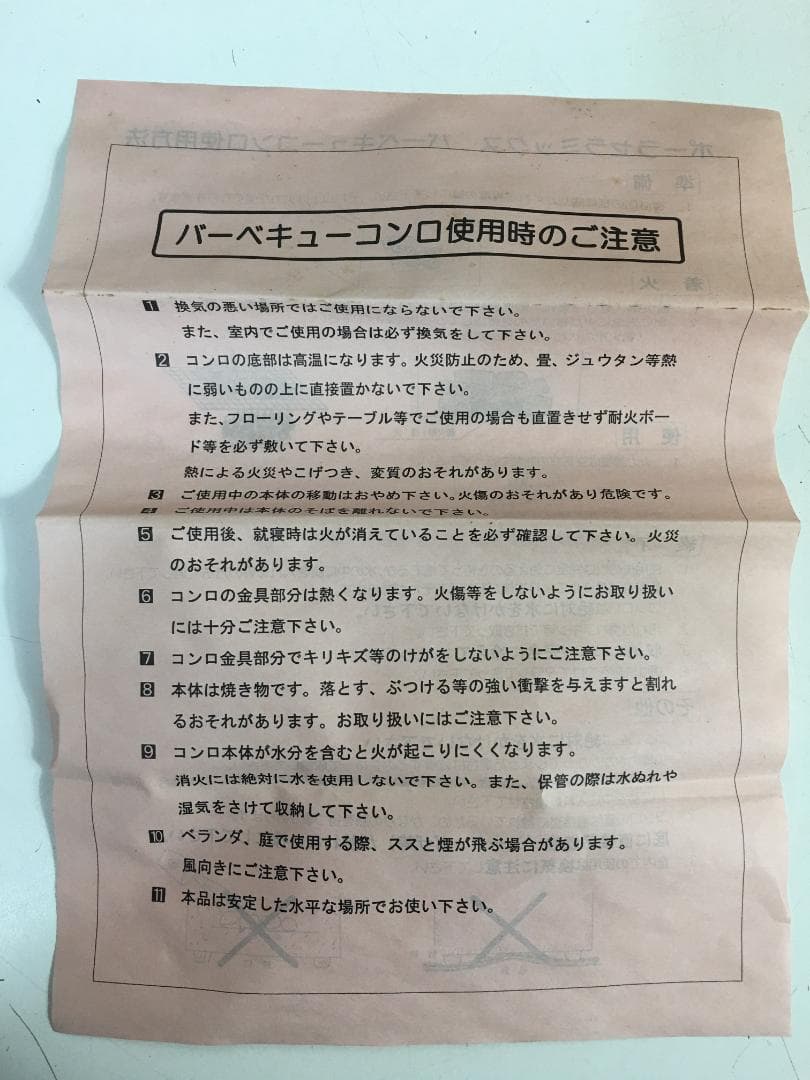 バーベキューコンロ使用時のご注意
1 換気の悪い場所ではご使用にならないで下さい。
また、室内でご使用の場合は必ず換気をして下さい。
2 コンロの底部は高温になります。火災防止のため、畳、ジュウタン等熱
に弱いものの上に直接置かないで下さい。
また、フローリングやテーブル等でご使用の場合も直置きせず耐火ボー
ド等を必ず敷いて下さい。
熱による火災やこげつき、変質のおそれがあります。
3 ご使用中の本体の移動はおやめ下さい。火傷のおそれがあり危険です。
4 ご使用中は本体のそばを離れないで下さい。
5 ご使用後、就寝時は火が消えていることを必ず確認して下さい。火災
のおそれがあります。
6 コンロの金具部分は熱くなります。火傷等をしないようにお取り扱い
には十分ご注意下さい。
7 コンロ金具部分でキリキズ等のけがをしないようにご注意下さい。
8 本体は焼き物です。落とす、ぶつける等の強い衝撃を与えますと割れ
るおそれがあります。お取り扱いにはご注意下さい。
9 コンロ本体が水分を含むと火が起こりにくくなります。
消火には絶対に水を使用しないで下さい。また、保管の際は水ぬれや
湿気をさけて収納して下さい。
10 ベランダ、庭で使用する際、ススと煙が飛ぶ場合があります。
風向きにご注意下さい。
11 本品は安定した水平な場所でお使い下さい。